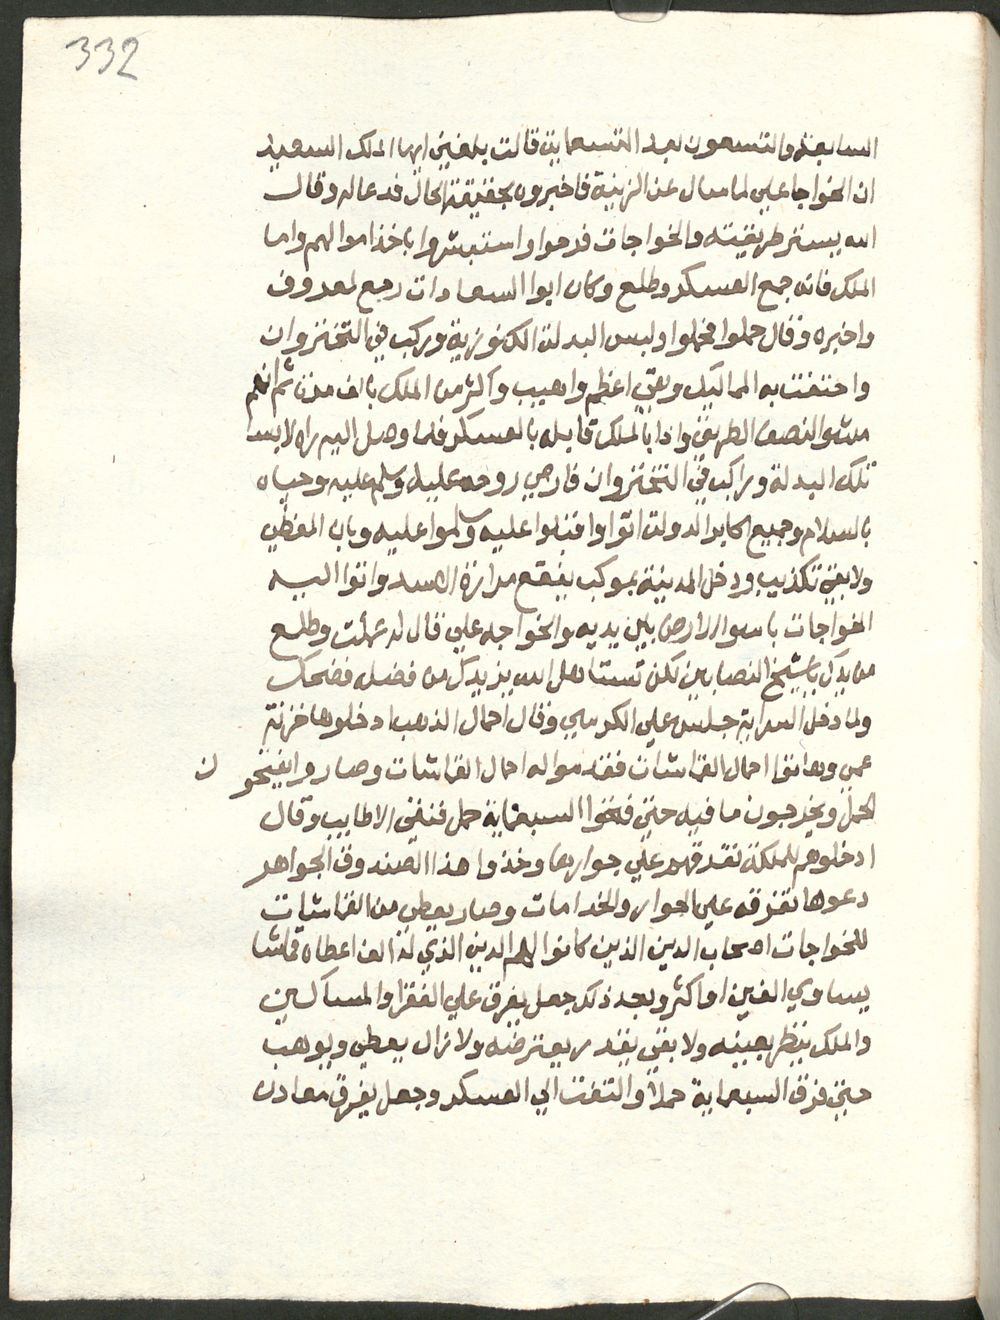 332
السابعة والتسعون بعد التسعماية قالت بلغني ايها الملك السعيد
ان الخواجا علي لما سال عن الزينة فاخبروه بحقيقة الحال فدعا له وقال
الله يستر طريقته والخواجات فرحوا واستبشروا باخذ اموالهم واما
الملك فانه جمع العسكر وطلع وكان ابوا السعادات رجع لمعروف
واخبره وقال حملوا فحملوا ولبس البدلة الكنوزية وركب في التختروان
واحتفت به المماليك وبقي اعظم واهيب واكثر من الملك بالف مرة ثم انهم
مشوا لنصف الطريق واذا بالملك قابله بالعسكر فلما وصل اليه راه لابسا
تلك البدلة وراكب في التختروان فارمي روحه عليه وسلم عليه وحياه
بالسلام وجميع اكابر الدولة اتوا وقبلوا عليه وسلموا عليه وبان المغطي
ولا بقي تكذيب ودخل المدينة بموكب يفقع مرارة الاسد واتوا اليه
الخواجات باسوا الارض بين يديه والخواجه علي قال له عملت وطلع
من يدك يا شيخ النصابين لكن تستاهل الله يزيدك من فضله فضحك
ولما دخل السراية جلس علي الكرسي وقال احمال الذهب ادخلوها خزنة
عمي وهاتوا احمال القماشات فقدموا له احمال القماشات وصاروا يفتحو ن
الحمل ويخرجون ما فيه حتي فتحوا السبعماية حمل فنقي الاطايب وقال
ادخلوهم للملكة تفرقهم علي جوارها وخذوا هذا الصندوق الجواهر
دعوها تفرقه علي الجوار والخدامات وصار يعطي من القماشات
للخواجات اصحاب الدين الذين كانوا لهم الدين الذي له الف اعطاه قماشا
يساوي الفين او اكثر وبعد ذلك جعل يفرق علي الفقرا والمساكين
والملك ينظر بعينه ولا بقي يقدر يعترضه ولا زال يعطي ويوهب
حتي فرق السبعماية حملا والتفت الي العسكر وجعل يفرق معادن